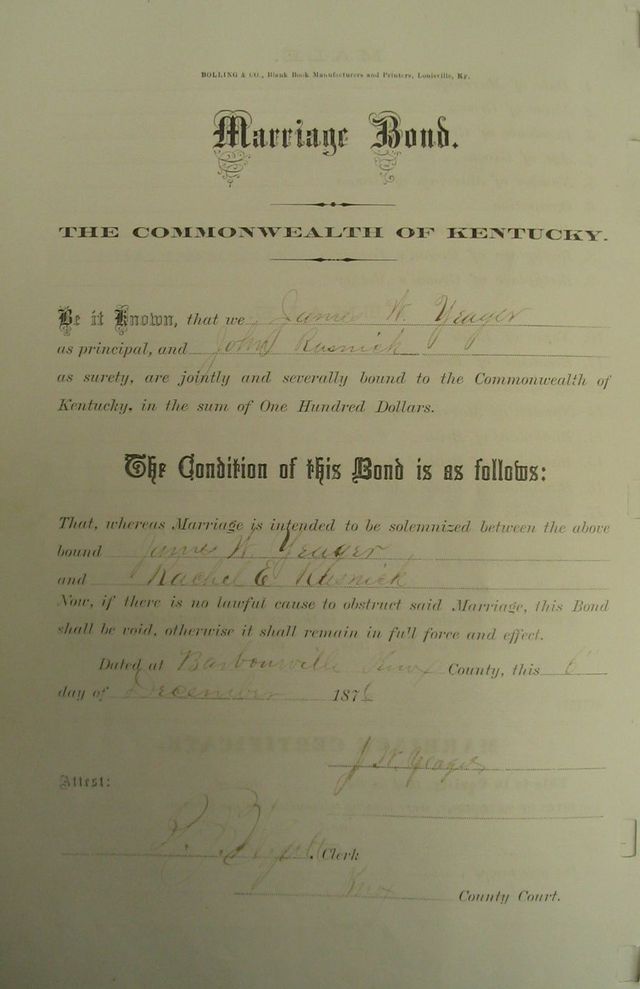 BOLLING & CO., Blank Book Manufacturers and Printers, Louisville, Ky.
Marriage Bond.
THE COMMONWEALTH OF KENTUCKY.
Be it Known, that we James W. Yeager
as principal, and John Rusnick
as surety, are jointly and severally bound to the Commonwealth of
Kentucky, in the sum of One Hundred Dollars.
The Condition of this Bond is as follows:
That, whereas Marriage is intended to be solemnized between the above
bound James W. Yeager
and Rachel E Rusnick
Now, if there is no lawful cause to obstruct said Marriage, this Bond
shall be void, otherwise it shall remain in full force and effect.
Dated at Barbourville Knox County, this 6"
day of December 1876
J W. Yeager
Attest:
Clerk
Knox County Court.